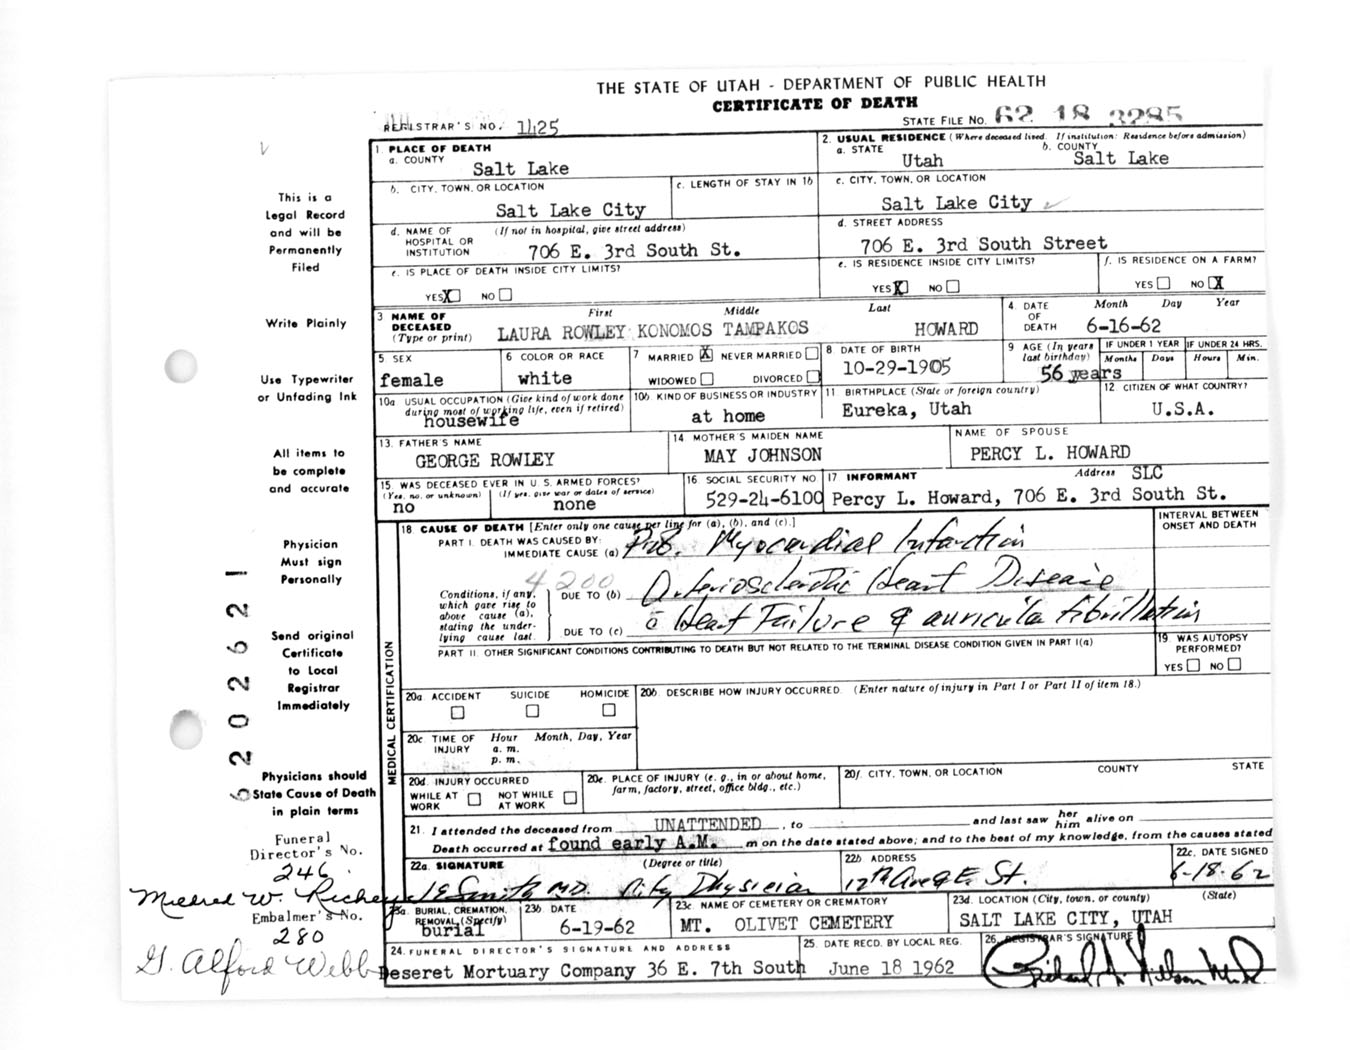 THE STATE OF UTAH - DEPARTMENT OF PUBLIC HEALTH
CERTIFICATE OF DEATH
REGISTRAR'S NO. 1425
STATE FILE NO. 62 18 3285
This is a
Legal Record
and will be
Permanently
Filed
Write Plainly
Use Typewriter
or Unfading Ink
All items to
be complete
and accurate
Physician
Must sign
Personally
Send original
Certificate
to Local
Registrar
Immediately
Physicians should
State Cause of Death
in plain terms
Funeral
Director's No.
246
Mildred W. Richey
Embalmer's No.
280
G. Alford Webb
6202621
1. PLACE OF DEATH
a. COUNTY
Salt Lake
b. CITY, TOWN, OR LOCATION
Salt Lake City
c. LENGTH OF STAY IN 1b
d. NAME OF HOSPITAL OR INSTITUTION (If not in hospital, give street address)
706 E. 3rd South St.
e. IS PLACE OF DEATH INSIDE CITY LIMITS?
YES X NO
2. USUAL RESIDENCE (Where deceased lived. If institution: Residence before admission)
a. STATE
Utah
b. COUNTY
Salt Lake
c. CITY, TOWN, OR LOCATION
Salt Lake City
d. STREET ADDRESS
706 E. 3rd South Street
e. IS RESIDENCE INSIDE CITY LIMITS?
YES X NO
f. IS RESIDENCE ON A FARM?
YES NO X
3 NAME OF DECEASED (Type or print)
First Middle Last
LAURA ROWLEY KONOMOS TAMPAKOS HOWARD
4. DATE OF DEATH Month Day Year
6-16-62
5 SEX
female
6 COLOR OR RACE
white
7 MARRIED X NEVER MARRIED
WIDOWED DIVORCED
8. DATE OF BIRTH
10-29-1905
9 AGE (In years last birthday)
56 years
IF UNDER 1 YEAR
Months Days
IF UNDER 24 HRS.
Hours Min.
10a USUAL OCCUPATION (Give kind of work done during most of working life, even if retired)
housewife
10b KIND OF BUSINESS OR INDUSTRY
at home
11 BIRTHPLACE (State or foreign country)
Eureka, Utah
12. CITIZEN OF WHAT COUNTRY?
U.S.A.
13. FATHER'S NAME
GEORGE ROWLEY
14 MOTHER'S MAIDEN NAME
MAY JOHNSON
NAME OF SPOUSE
PERCY L. HOWARD
15. WAS DECEASED EVER IN U. S. ARMED FORCES?
(Yes, no, or unknown)
no
(If yes, give war or dates of service)
none
16 SOCIAL SECURITY NO.
529-24-6100
17 INFORMANT Address SLC
Percy L. Howard, 706 E. 3rd South St.
MEDICAL CERTIFICATION
18 CAUSE OF DEATH [Enter only one cause per line for (a), (b), and (c).]
INTERVAL BETWEEN
ONSET AND DEATH
PART I. DEATH WAS CAUSED BY:
IMMEDIATE CAUSE (a) Prob. Myocardial Infarction
4200
Conditions, if any, which gave rise to above cause (a), stating the underlying cause last.
DUE TO (b) Arteriosclerotic Heart Disease
DUE TO (c) c̄ Heart Failure & auricular fibrillation
PART II. OTHER SIGNIFICANT CONDITIONS CONTRIBUTING TO DEATH BUT NOT RELATED TO THE TERMINAL DISEASE CONDITION GIVEN IN PART I(a)
19 WAS AUTOPSY PERFORMED?
YES NO
20a ACCIDENT SUICIDE HOMICIDE
20b DESCRIBE HOW INJURY OCCURRED. (Enter nature of injury in Part I or Part II of item 18.)
20c TIME OF INJURY Hour a. m. p. m. Month, Day, Year
20d. INJURY OCCURRED
WHILE AT WORK NOT WHILE AT WORK
20e. PLACE OF INJURY (e. g., in or about home, farm, factory, street, office bldg., etc.)
20f. CITY, TOWN, OR LOCATION COUNTY STATE
21. I attended the deceased from UNATTENDED, to and last saw her him alive on
Death occurred at found early A.M. m on the date stated above; and to the best of my knowledge, from the causes stated
22a SIGNATURE (Degree or title)
J E Smith M.D. City Physician
22b ADDRESS
12th Ave & E. St.
22c. DATE SIGNED
6-18-62
23a. BURIAL, CREMATION, REMOVAL (Specify)
burial
23b DATE
6-19-62
23c NAME OF CEMETERY OR CREMATORY
MT. OLIVET CEMETERY
23d. LOCATION (City, town, or county) (State)
SALT LAKE CITY, UTAH
24. FUNERAL DIRECTOR'S SIGNATURE AND ADDRESS
Deseret Mortuary Company 36 E. 7th South
25. DATE RECD. BY LOCAL REG.
June 18 1962
26. REGISTRAR'S SIGNATURE